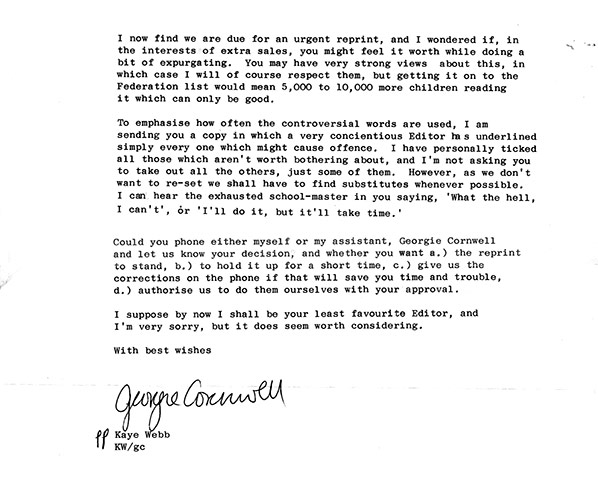 I now find we are due for an urgent reprint, and I wondered if, in
the interests of extra sales, you might feel it worth while doing a
bit of expurgating.  You may have very strong views  about this, in
which case I will of course respect them, but getting it on to the
Federation list would mean 5,000 to 10,000 more children reading
it which can only be good.
To emphasise how often the controversial words are used, I am
sending you a copy in which a very concientious Editor has underlined
simply every one which might cause offence.  I have personally ticked
all those which aren't worth bothering about, and I'm not asking you
to take out all the others, just some of them.  However, as we don't
want to re-set we shall have to find substitutes whenever possible.
I can hear the exhausted school-master in you saying, 'What the hell,
I can't', or 'I'll do it, but it'll take time.'
Could you phone either myself or my assistant, Georgie Cornwell
and let us know your decision, and whether you want a.) the reprint
to stand, b.) to hold it up for a short time, c.) give us the
corrections on the phone if that will save you time and trouble,
d.) authorise us to do them ourselves with your approval.
I suppose by now I shall be your least favourite Editor, and
I'm very sorry, but it does seem worth considering.
With best wishes
Georgie Cornwell
pp Kaye Webb
KW/gc